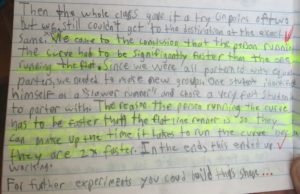 Then the whole class gave it a try in pairs of two
but we still couldn't get to the destination at the exact
same. We came to the conclusion that the person running
the curve had to be significantly faster than the one
running the flat. Since we were all partnered with equal
partners, we needed to make new groups. One student
himself as a "slower runner" and chose a very fast student
to partner with. The reason the person running the curve
has to be faster than the flat line runner is so they
can make up the time it takes to run the curve
they are 2x faster. In the end this ended up
working.
For futher experiments you could build this shape...